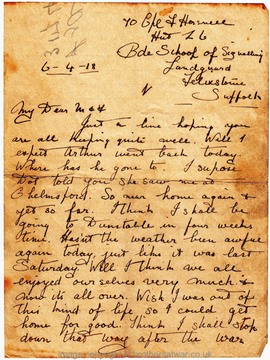 To Cpl F Hammell
Hut 26
Bde School of Signalling
6-4-18 Landguard
Felixstowe
Suffolk
My Dear M & F
Just a line hoping you
are all keeping quite well. Well I
expect Arthur went back today
Where has he gone to. I supose
Dot told you she saw me at
Chelmsford. So near home again &
yet so far. I think I shall be
going to Dunstable in four weeks
time. Hasnt the weather been awful
again today, just like it was last
Saturday. Well I think we all
enjoyed ourselves very much &
now its all over. Wish I was out of
this kind of life, so I could get
home for good. Think I shall stop
down that way after the war.